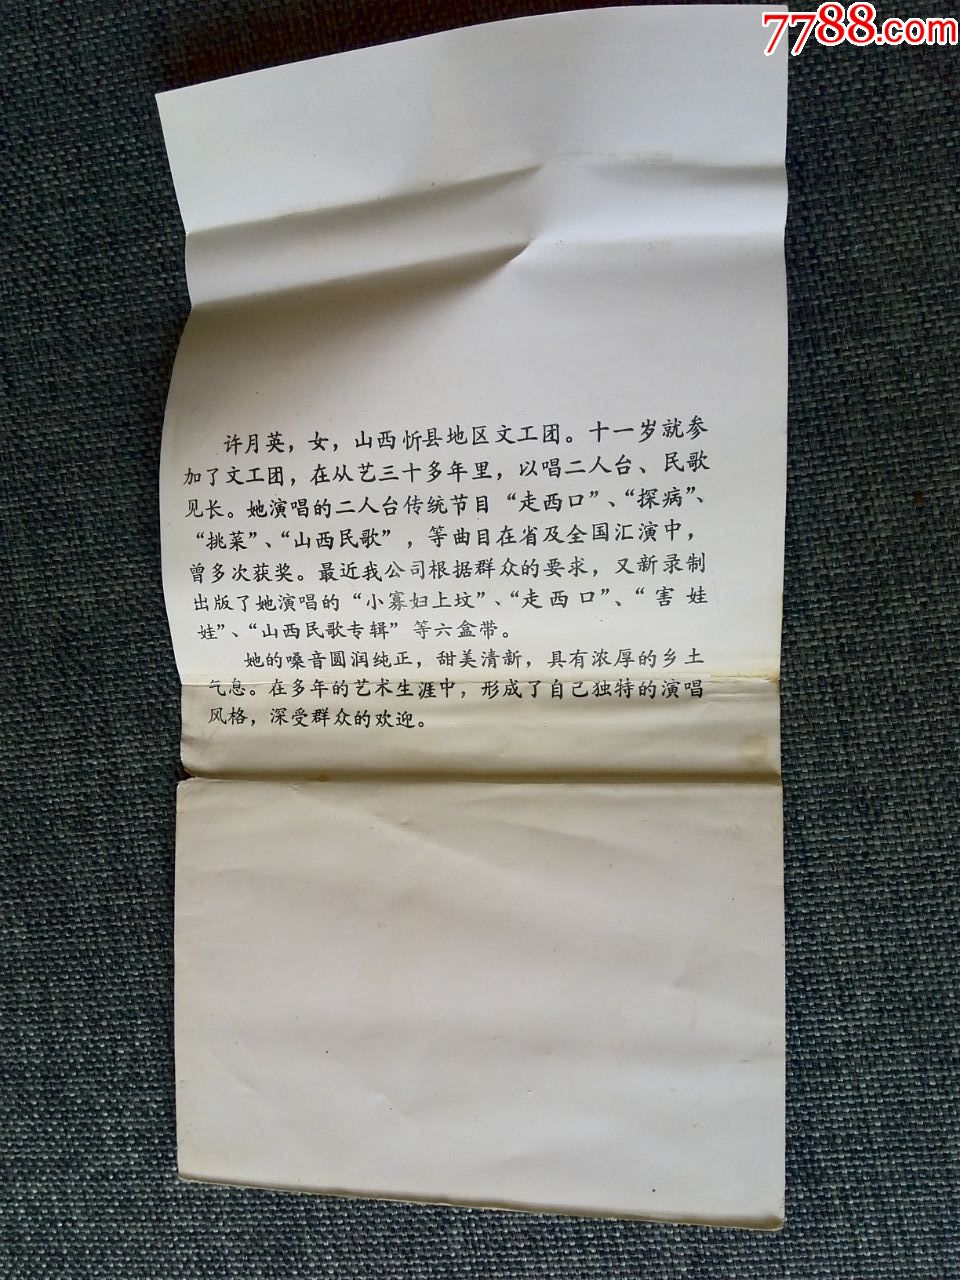 7788.com
许月英，女，山西忻县地区文工团。十一岁就参
加了文工团，在从艺三十多年里，以唱二人台、民歌
见长。她演唱的二人台传统节目“走西口”、“探病”、
“挑菜”、“山西民歌”，等曲目在省及全国汇演中，
曾多次获奖。最近我公司根据群众的要求，又新录制
出版了她演唱的“小寡妇上坟”、“走西口”、“害娃
娃”、“山西民歌专辑”等六盒带。
她的嗓音圆润纯正，甜美清新，具有浓厚的乡土
气息。在多年的艺术生涯中，形成了自己独特的演唱
风格，深受群众的欢迎。